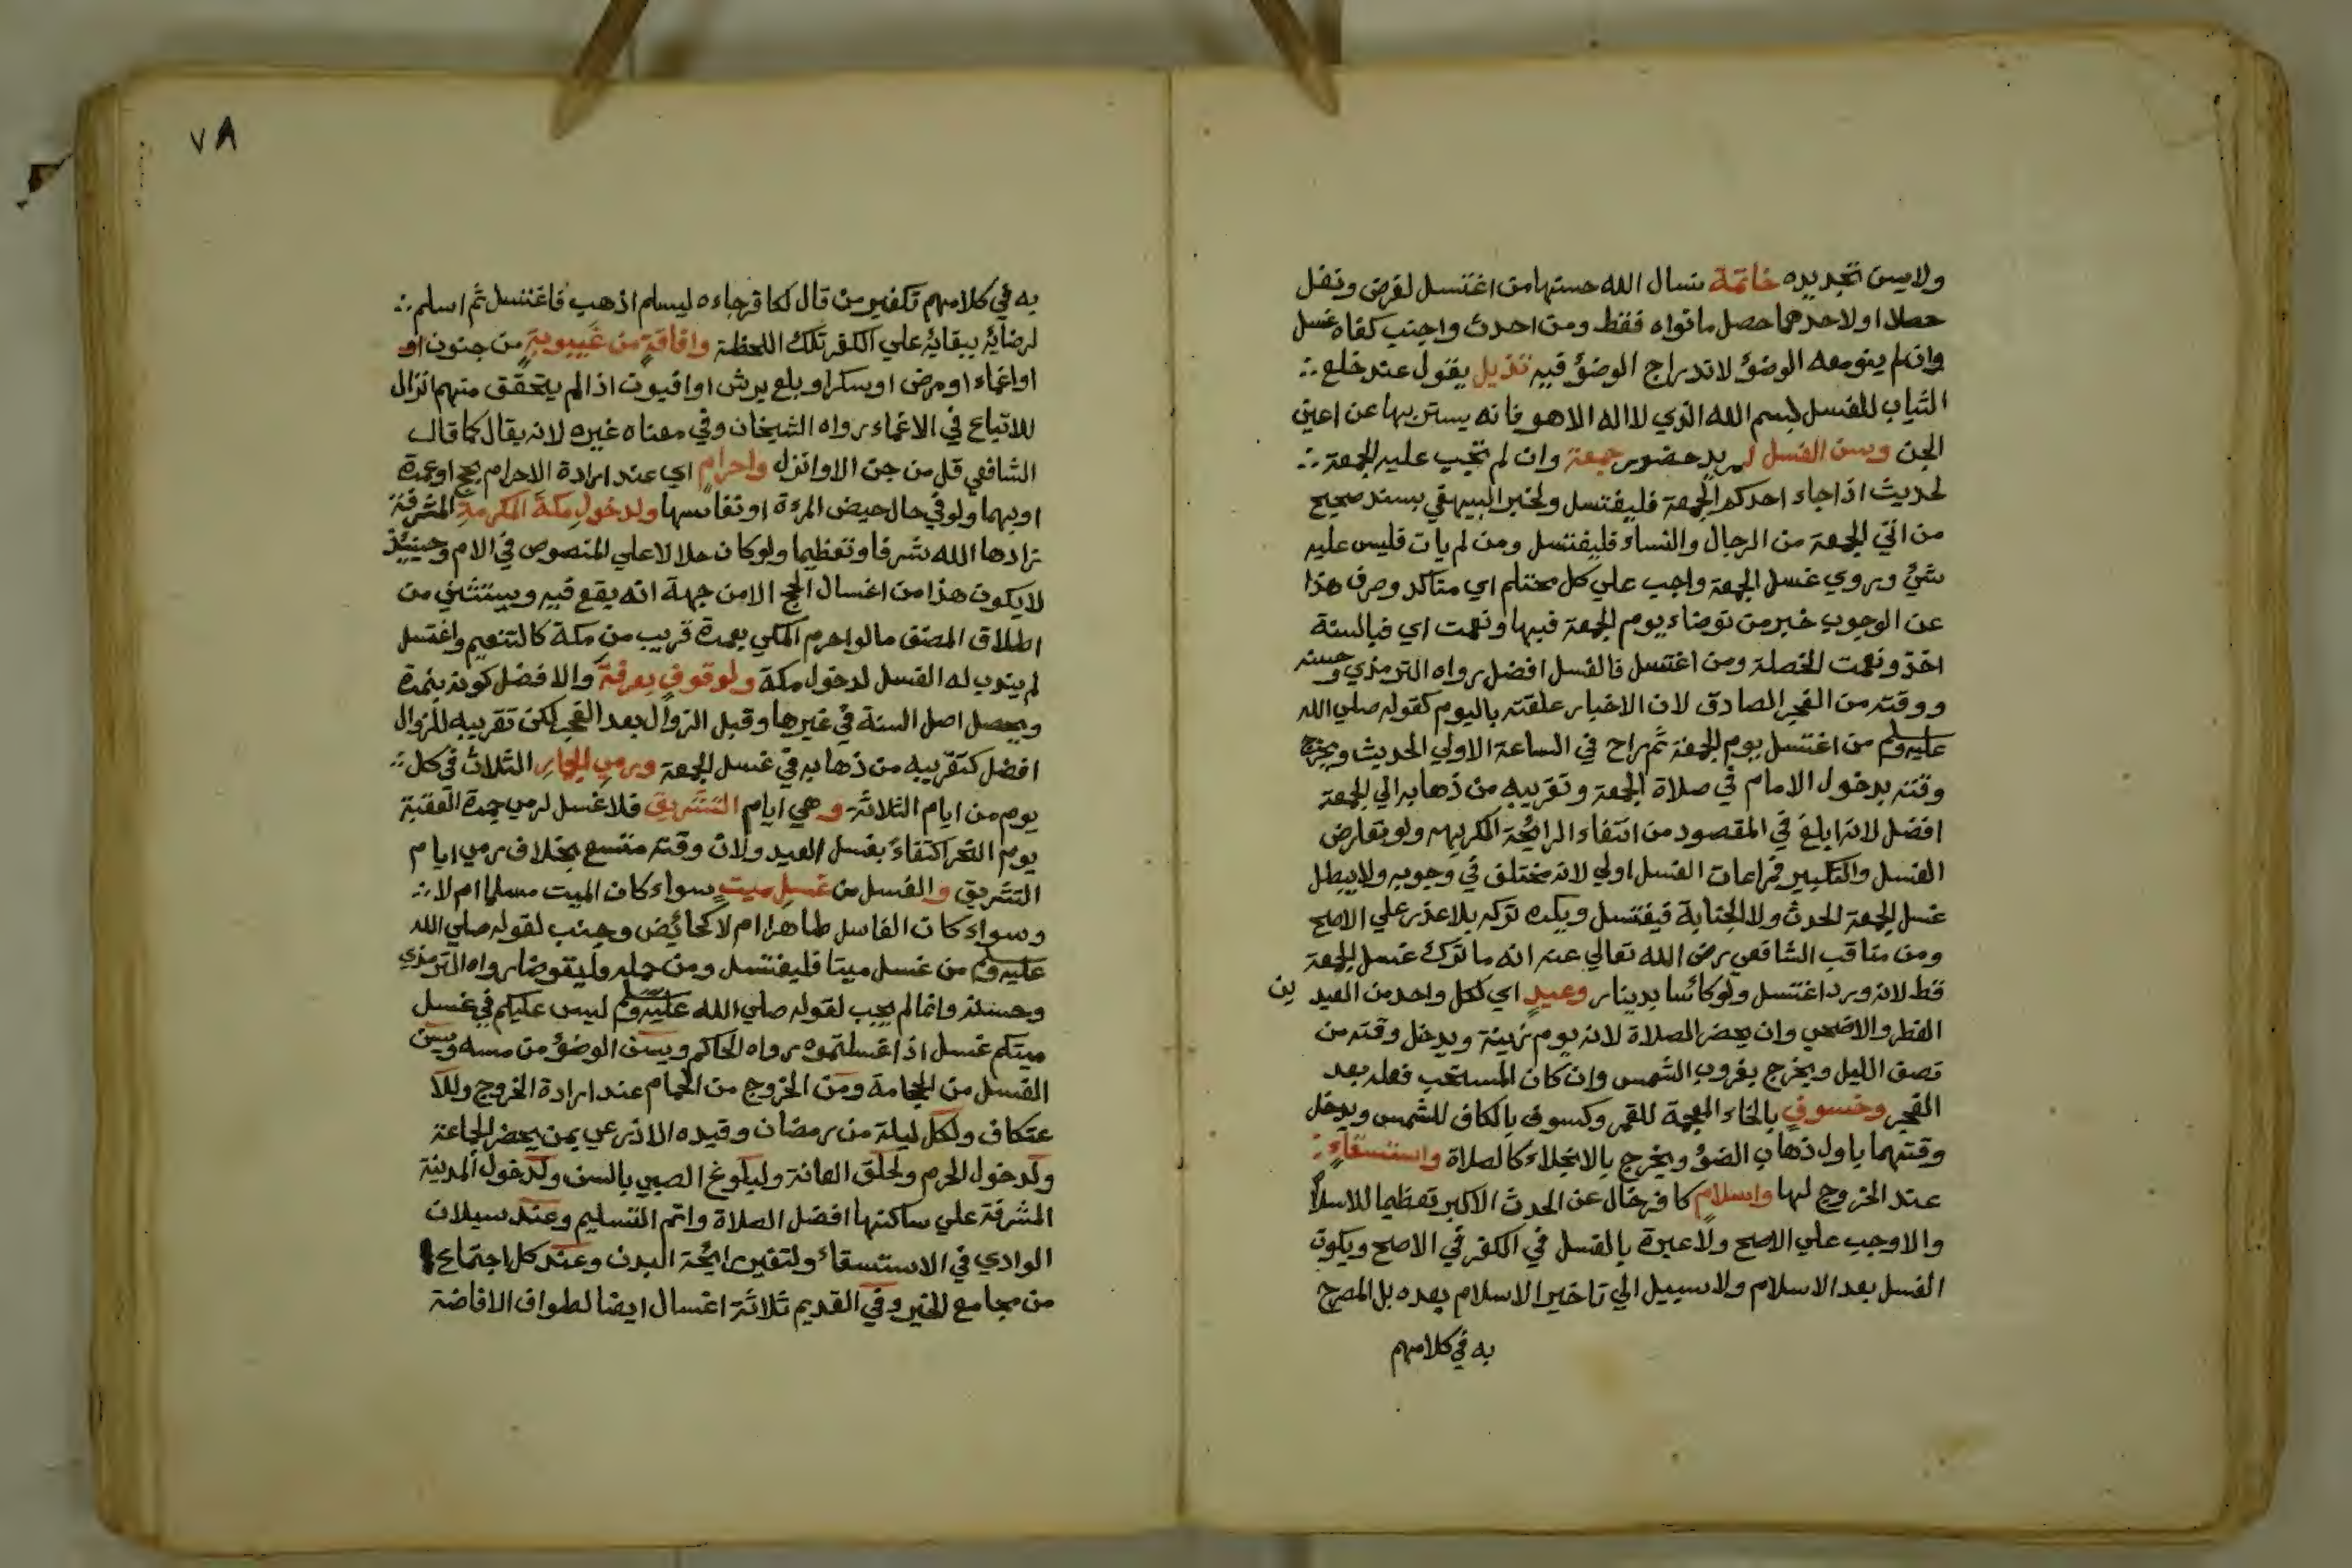 ولايسن تجديده خاتمة نسال الله حسنها من اغتسل لفرض ونفل
حصلا او لاحدهما حصل ما نواه فقط ومن احدث واجنب كفاه غسل
وان لم ينو معه الوضوء لاندراج الوضوء فيه تذييل يقول عند خلع
الثياب للغسل بسم الله الذي لا اله الا هو فانه يستر بها عن اعين
الجن ويسن الغسل لمريد حضور جمعة وان لم تجب عليه الجمعة
لحديث اذا جاء احدكم الجمعة فليغتسل ولخبر البيهقي بسند صحيح
من اتي الجمعة من الرجال والنساء فليغتسل ومن لم يات فليس عليه
شئ وروي غسل الجمعة واجب علي كل محتلم اي متاكد وصرف هذا
عن الوجوب خبر من توضاء يوم الجمعة فبها ونعمت اي فبالسنة
اخذ ونعمت الخصلة ومن اغتسل فالغسل افضل رواه الترمذي وحسنه
ووقته من الفجر الصادق لان الاخبار علقته باليوم كقوله صلي الله
عليه وسلم من اغتسل يوم الجمعة ثم راح في الساعة الاولي الحديث ويخرج
وقته بدخول الامام في صلاة الجمعة وتقريبه من ذهابه الي الجمعة
افضل لانه ابلغ في المقصود من انتفاء الرائحة الكريهه ولو تعارض
الغسل والتكبير فمراعات الغسل اولي لانه مختلف في وجوبه ولايبطل
غسل الجمعة الحدث ولا الجنابة فيغتسل ويكره تركه بلا عذر علي الاصح
ومن مناقب الشافعي رضي الله تعالي عنه انه ما ترك غسل الجمعة
قط لانه ورد اغتسل ولو كاسا بدينار وعيد اي لكل واحد من العيد ين
الفطر والاضحي وان يحضر الصلاة لانه يوم زينة ويدخل وقته من
نصف الليل ويخرج بغروب الشمس وان كان المستحب فعله بعد
الفجر وخسوف بالخاء المعجمة للقمر وكسوف بالكاف للشمس ويدخل
وقتهما باول ذهاب الضوء ويخرج بالانجلاء كالصلاة واستسقاء
عند الخروج لها واسلام كافر خال عن الحدث الاكبر تعظيما للاسلام
والا وجب علي الاصح ولا عبرة بالغسل في الكفر في الاصح ويكون
الغسل بعد الاسلام ولا سبيل الي تاخير الاسلام بعده بل المصرح
به في كلامهم
٧٨
به في كلامهم تكفير من قال لكافر جاءه ليسلم اذهب فاغتسل ثم اسلم
لرضائه ببقائه علي الكفر تلك اللحظة وافاقة من غيبوبة من جنون او
او اغماء او مرض او يسكر او بلع برش او افيون اذا لم يتحقق منهم انزال
للاتباع في الاغماء رواه الشيخان وفي معناه غيره لانه يقال كما قال
الشافعي قل من جن الا وانزل واحرام اي عند ارادة الاحرام بحج او عمرة
او بهما ولو في حال حيض المرءة او نفاسها ولدخول مكة المكرمة المشرفة
زادها الله شرفا وتعظيما ولو كان حلالا علي المنصوص في الام وحينئذ
لايكون هذا من اغسال الحج الا من جهة انه يقع فيه ويستثني من
اطلاق المصنف ما لو احرم المكي بعمرة قريب من مكة كالتنعيم واغتسل
لم يندب له الغسل لدخول مكة ولوقوف بعرفة والافضل كونه بنمرة
ويحصل اصل السنة في غيرها وقبل الزوال بعد الفجر لكن تقريبه للزوال
افضل كتقريبه من ذهابه في غسل الجمعة ورمي الجمار الثلاث في كل
يوم من ايام الثلاثة وهي ايام التشريق فلا غسل لرمي جمرة العقبة
يوم النحر اكتفاء بغسل العيد ولان وقته متسع بخلاف رمي ايام
التشريق والغسل من غسل ميت سواء كان الميت مسلما ام لا
وسواء كان الغاسل طاهرا ام لا كحائض وجنب لقوله صلي الله
عليه وسلم من غسل ميتا فليغتسل ومن حمله فليتوضا رواه الترمذي
وحسنه وانما لم يجب لقوله صلي الله عليه وسلم ليس عليكم في غسل
ميتكم غسل اذا غسلتموه رواه الحاكم ويسن الوضوء من مسه ويسن
الغسل من الحجامة ومن الخروج من الحمام عند ارادة الخروج وللا
عتكاف ولكل ليلة من رمضان وقيده الاذرعي بمن يحضر الجماعة
ولدخول الحرم ولحلق العانة ولبلوغ الصبي بالسن ولدخول المدينة
المشرفة علي ساكنها افضل الصلاة واتم التسليم وعند سيلان
الوادي في الاستسقاء ولتغير رائحة البدن وعند كل اجتماع
من مجامع الخير وفي القديم ثلاثة اغسال ايضا لطواف الافاضة